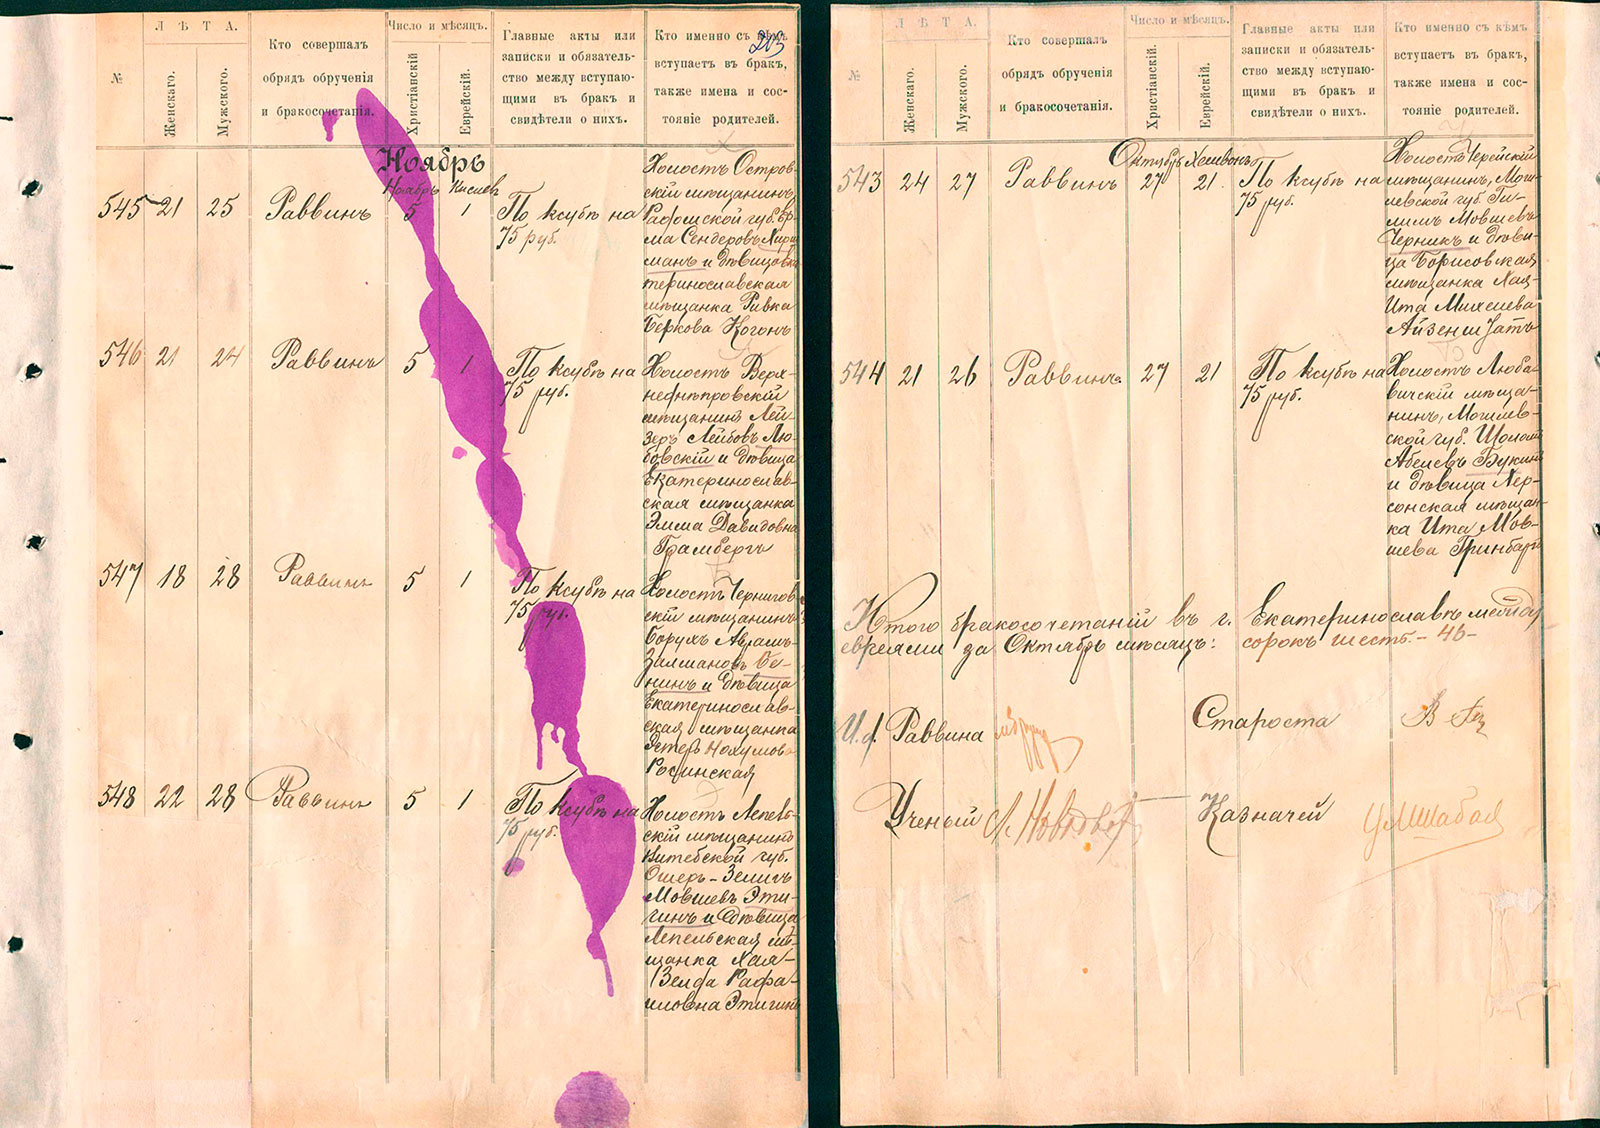 203
Л Ѣ Т А.
Число и мѣсяцъ.
№
Женскаго.
Мужского.
Кто совершалъ
обрядъ обрученія
и бракосочетанія.
Христіанскій
Еврейскій.
Главные акты или
записки и обязатель-
ство между вступаю-
щими въ бракъ и
свидѣтели о нихъ.
Кто именно съ кѣмъ
вступаетъ въ бракъ,
также имена и сос-
тояніе родителей.
Ноябрь
Ноябрь Кислевъ
545 21 25 Раввинъ 5 1
По ксубѣ на
75 руб.
Холостъ Остров-
скій мѣщанинъ,
Радомской губ.
Сендеровъ
манъ и дѣвица Ека-
теринославская
мѣщанка Ривка
Беркова Когонъ
546 21 24 Раввинъ 5 1
По ксубѣ на
75 руб.
Холостъ Верх-
неднѣпровскій
мѣщанинъ Лей-
зеръ Лейбовъ Лю-
бовскій и дѣвица
Екатеринослав-
ская мѣщанка
Эмма Давидовна
Грамбергъ
547 18 28 Раввинъ 5 1
По ксубѣ на
75 руб.
Холостъ Чернигов-
скій мѣщанинъ
Борухъ Авраамъ-
Залмановъ Бе-
нинъ и дѣвица
Екатеринослав-
ская мѣщанка
Эстеръ Нохумова
Росинская
548 22 28 Раввинъ 5 1
По ксубѣ на
75 руб.
Холостъ Лепель-
скій мѣщанинъ
Витебской губ.
Ошеръ-Зелигъ
Мовшевъ Эти-
гинъ и дѣвица
Лепельская мѣ-
щанка Хая-
Зелда Рафа-
иловна Этигинъ
Л Ѣ Т А.
Число и мѣсяцъ.
№
Женскаго.
Мужского.
Кто совершалъ
обрядъ обрученія
и бракосочетанія.
Христіанскій.
Еврейскій.
Главные акты или
записки и обязатель-
ство между вступаю-
щими въ бракъ и
свидѣтели о нихъ.
Кто именно съ кѣмъ
вступаетъ въ бракъ,
также имена и сос-
тояніе родителей.
Октябрь Хешвонъ
543 24 27 Раввинъ 27 21
По ксубѣ на
75 руб.
Холостъ Черейскій
мѣщанинъ, Моги-
левской губ. Ги-
лимъ Мовшевъ
Черникъ и дѣви-
ца Борисовская
мѣщанка Хая-
Ита Михелева
Айзенштатъ
544 21 26 Раввинъ 27 21
По ксубѣ на
75 руб.
Холостъ Люба-
вичскій мѣща-
нинъ, Могилев-
ской губ. Шолом
Абелевъ Букинъ
и дѣвица Хер-
сонская мѣщан-
ка Ита Мов-
шева Гринбаргъ
Итого бракосочетаній въ г. Екатеринославѣ между
евреями за Октябрь мѣсяцъ: сорокъ шесть. - 46 -
И. д. Раввина
Староста
Ученый
Казначей